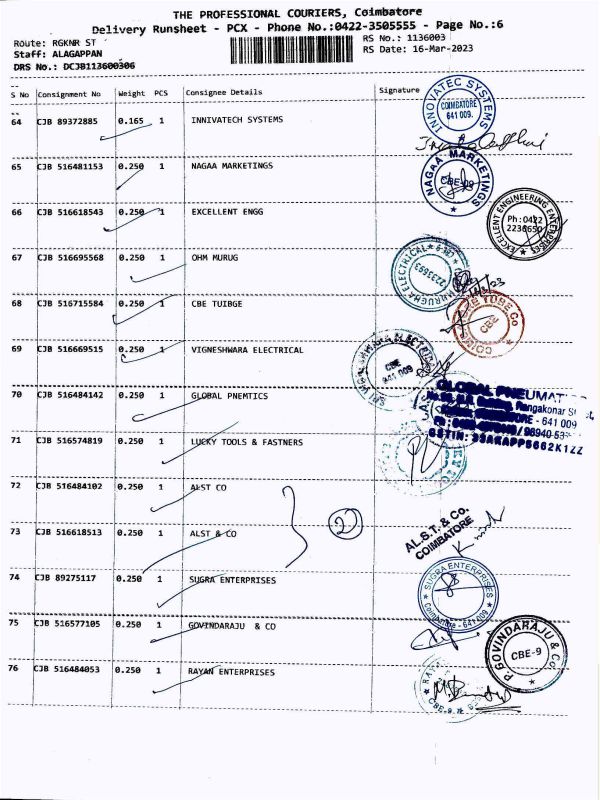 THE PROFESSIONAL COURIERS, Coimbatore
Delivery Runsheet - PCX - Phone No.:0422-3505555 - Page No.:6
Route: RGKNR ST
RS No.: 1136003
Staff: ALAGAPPAN
RS Date: 16-Mar-2023
DRS No.: DCJB113600306
S No Consignment No Weight PCS Consignee Details Signature
64 CJB 89372885 0.165 1 INNIVATECH SYSTEMS
INNOVATEC SYSTEMS COIMBATORE 641 009.
65 CJB 516481153 0.250 1 NAGAA MARKETINGS
NAGAA MARKETINGS CBE-09
66 CJB 516618543 0.250 1 EXCELLENT ENGG
EXCELLENT ENGINEERING ENTERPRISES Ph:0422 2236650
67 CJB 516695568 0.250 1 OHM MURUG
ELECTRICAL 2233693
68 CJB 516715584 0.250 1 CBE TUIBGE
TUBE Co CBE
69 CJB 516669515 0.250 1 VIGNESHWARA ELECTRICAL
CBE 641 009
70 CJB 516484142 0.250 1 GLOBAL PNEMTICS
GLOBAL PNEUMAT
Rangakonar St
- 641 009
71 CJB 516574819 0.250 1 LUCKY TOOLS & FASTNERS
72 CJB 516484102 0.250 1 ALST CO
2
73 CJB 516618513 0.250 1 ALST & CO
AL.S.T. & Co.
COIMBATORE
74 CJB 89275117 0.250 1 SUGRA ENTERPRISES
SUGRA ENTERPRISES Coimbatore - 641 009
75 CJB 516577105 0.250 1 GOVINDARAJU & CO
P GOVINDARAJU & CO. CBE-9
76 CJB 516484053 0.250 1 RAYAN ENTERPRISES